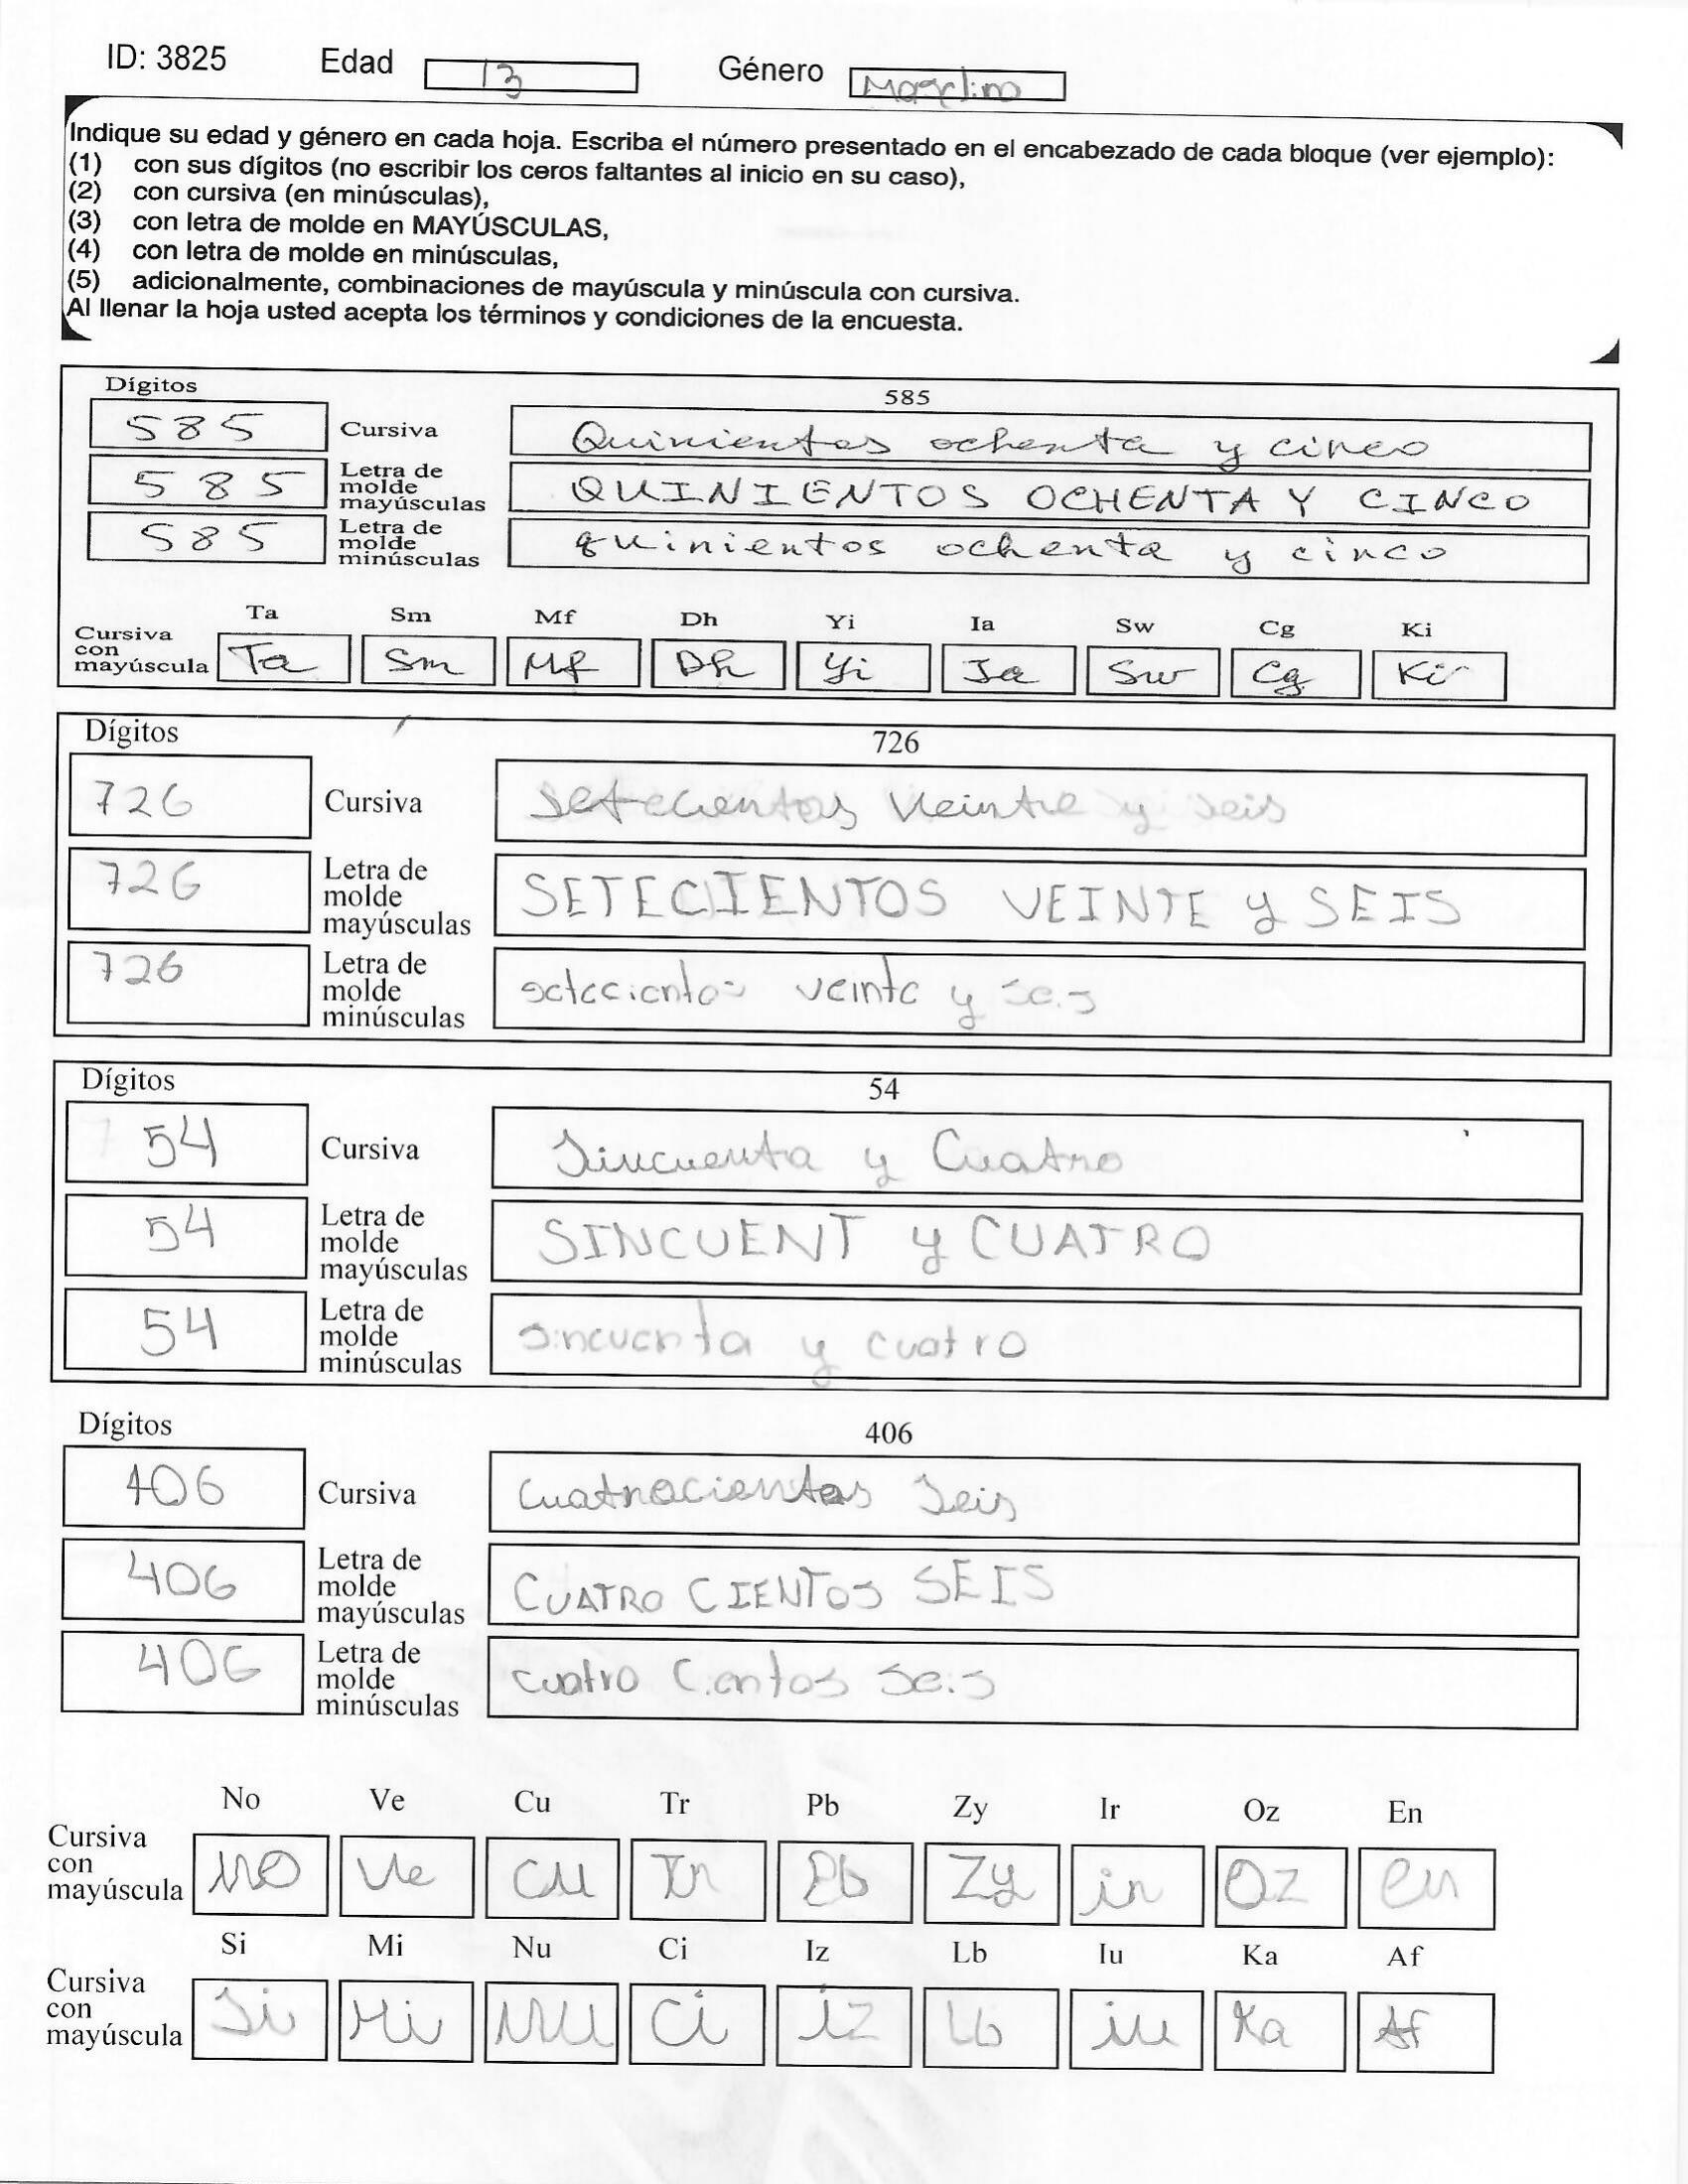 ID: 3825 Edad 13 Género
Indique su edad y género en cada hoja. Escriba el número presentado en el encabezado de cada bloque (ver ejemplo):
(1) con sus dígitos (no escribir los ceros faltantes al inicio en su caso),
(2) con cursiva (en minúsculas),
(3) con letra de molde en MAYÚSCULAS,
(4) con letra de molde en minúsculas,
(5) adicionalmente, combinaciones de mayúscula y minúscula con cursiva.
Al llenar la hoja usted acepta los términos y condiciones de la encuesta.
Dígitos 585
585 Cursiva Quinientos ochenta y cinco
585 Letra de molde mayúsculas QUINIENTOS OCHENTA Y CINCO
585 Letra de molde minúsculas quinientos ochenta y cinco
Ta Sm Mf Dh Yi Ia Sw Cg Ki
Cursiva con mayúscula Ta Sm Mf Dh Yi Ia Sw Cg Ki
Dígitos 726
726 Cursiva Setecientos Veinte y seis
726 Letra de molde mayúsculas SETECIENTOS VEINTE y SEIS
726 Letra de molde minúsculas setecientos veinte y seis
Dígitos 54
54 Cursiva Sincuenta y Cuatro
54 Letra de molde mayúsculas SINCUENT y CUATRO
54 Letra de molde minúsculas sincuenta y cuatro
Dígitos 406
406 Cursiva Cuatrocientos Seis
406 Letra de molde mayúsculas CUATRO CIENTOS SEIS
406 Letra de molde minúsculas cuatro Cientos Seis
No Ve Cu Tr Pb Zy Ir Oz En
Cursiva con mayúscula NO Ve Cu Tr Pb Zy ir Oz en
Si Mi Nu Ci Iz Lb Iu Ka Af
Cursiva con mayúscula Si Mi NU Ci iz Lb iu Ka Af